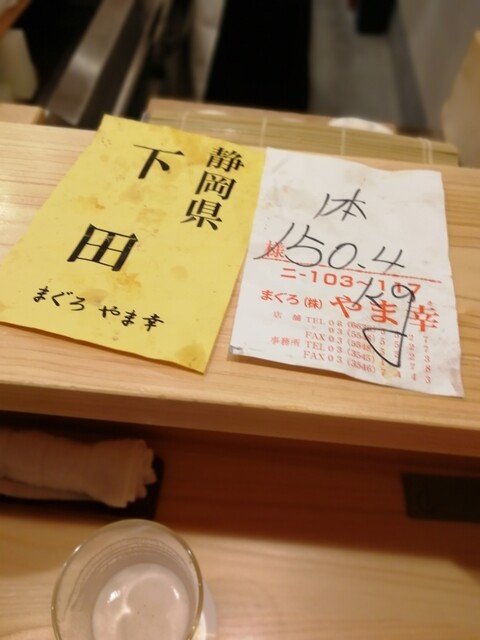 静岡県
下田
まぐろ やま幸
1本
様
150.4
ニ-103~107
K9
まぐろ(株) やま幸
店舗 TEL 03
FAX 03
事務所 TEL 03 (3545)
FAX 03 (3546)